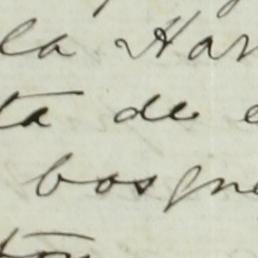 la Har
ta de e
bosque